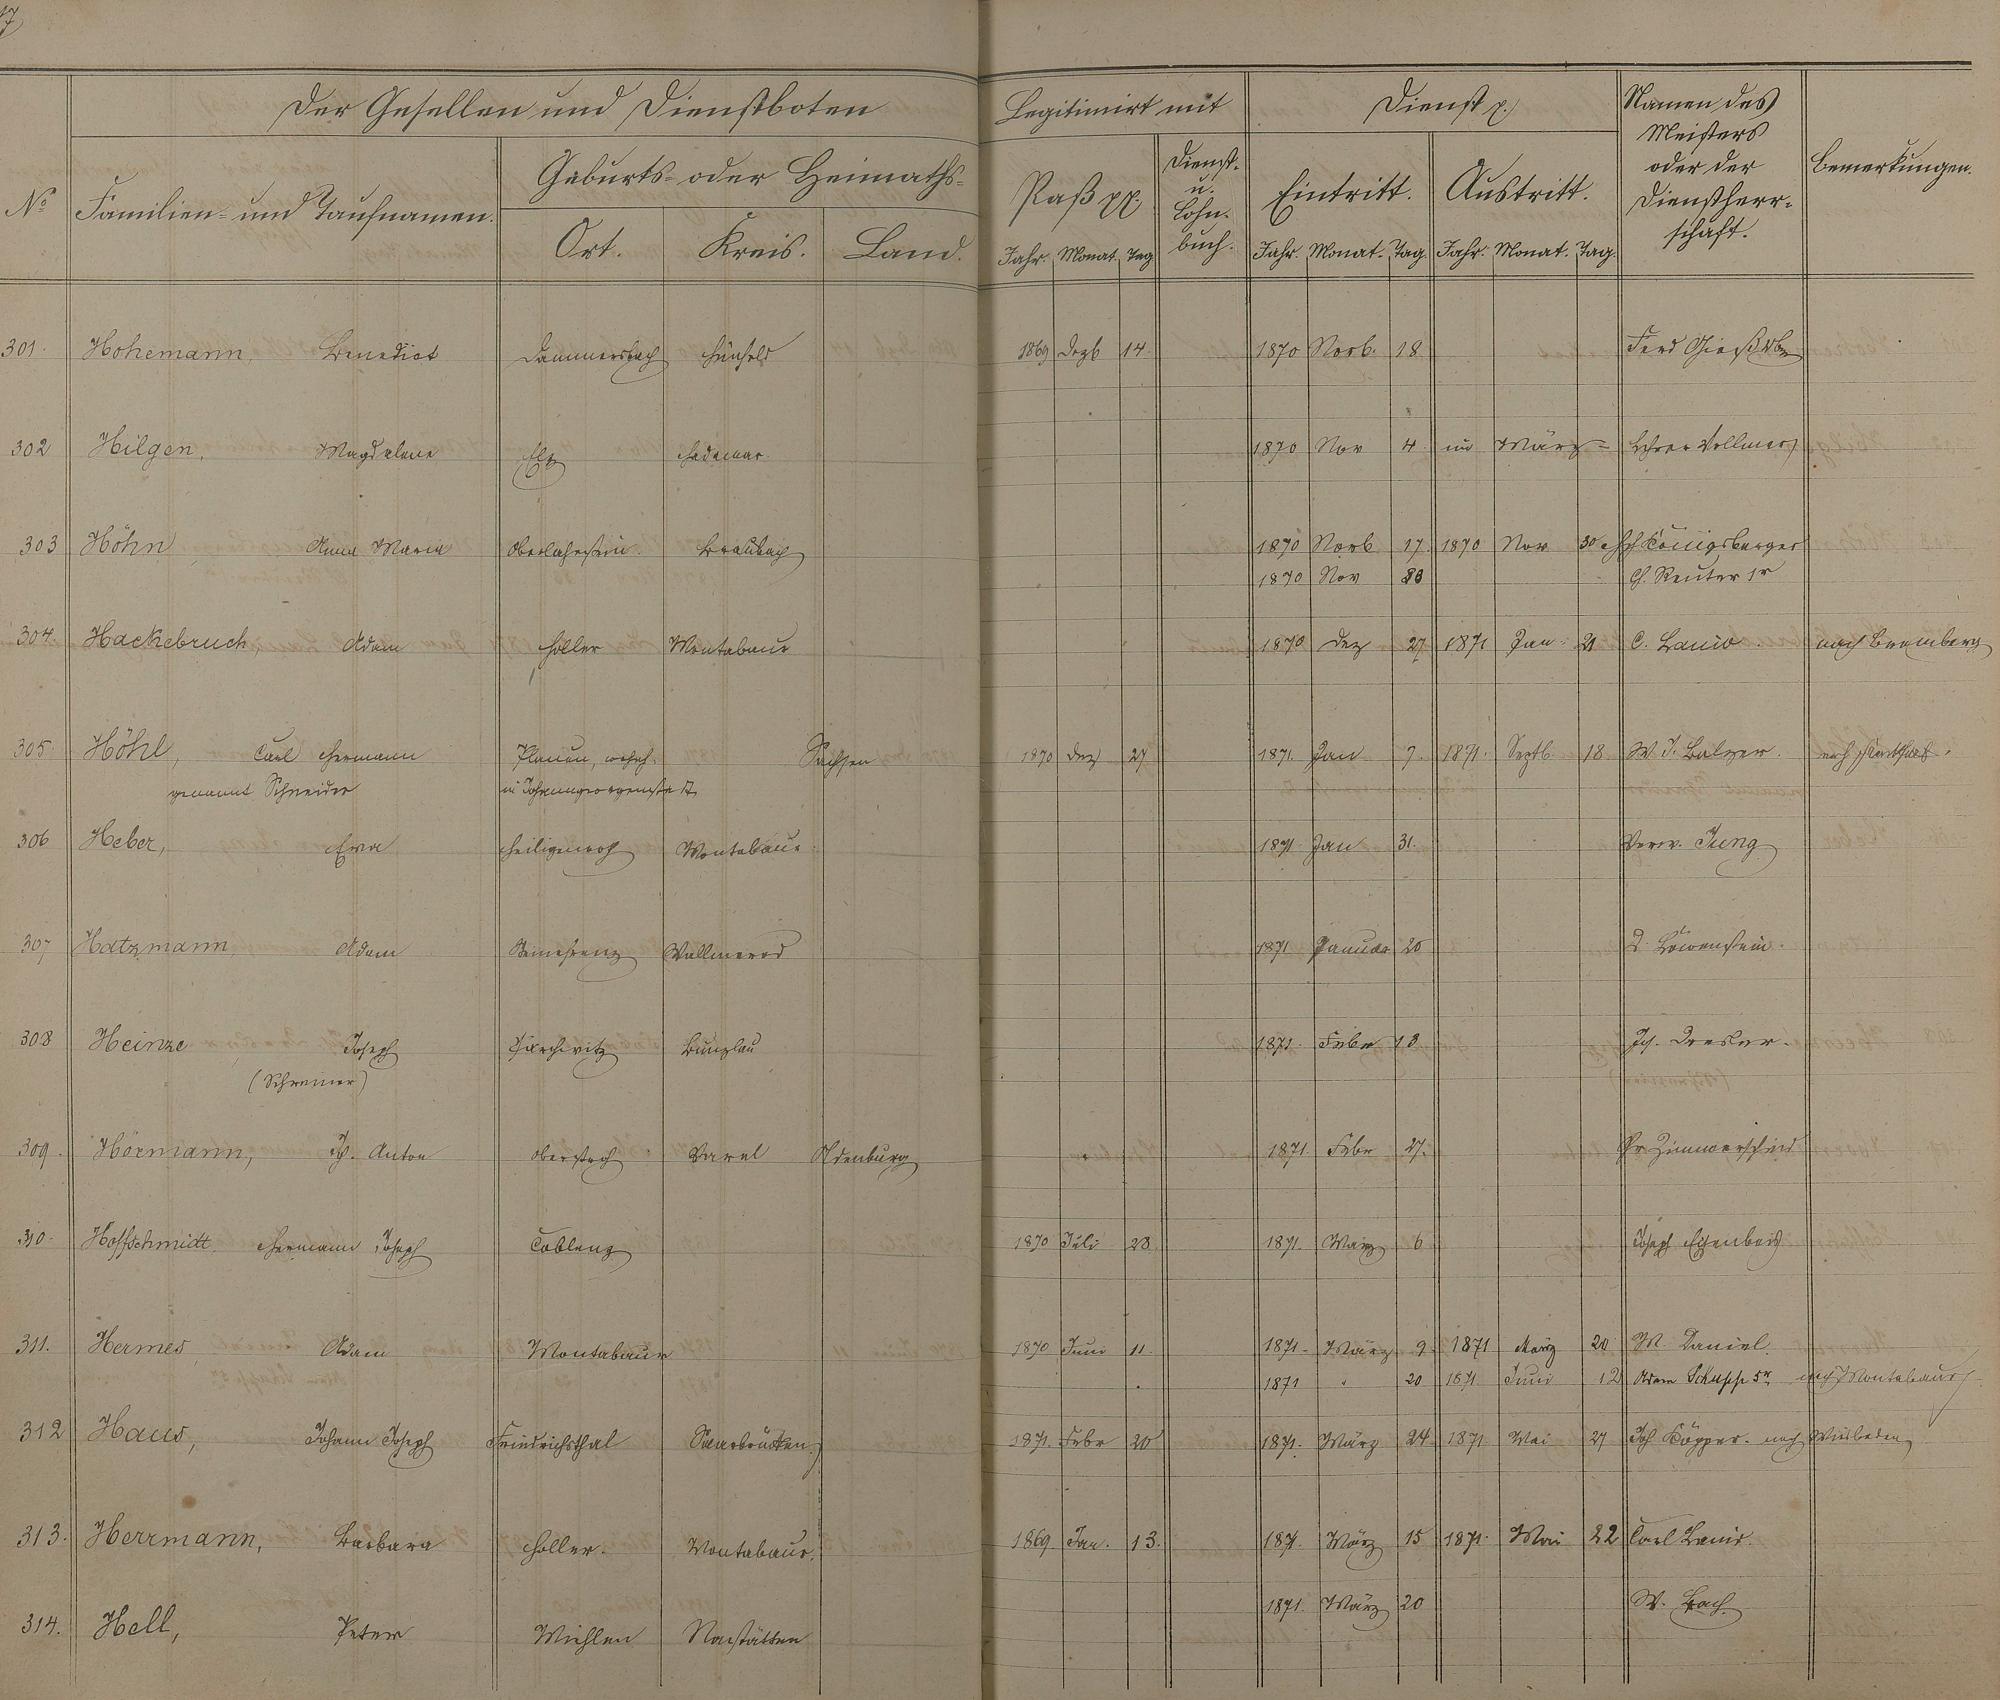 17
Der Gesellen und Dienstboten
Legitimirt mit
Dienst p.
Namen des Meisters oder der Dienstherrschaft.
Bemerkungen.
No
Familien- und Taufnamen.
Geburts- oder Heimaths-
Ort. Kreis. Land.
Paß pp.
Dienst- u. Lohn-buch.
Eintritt. Austritt.
Jahr. Monat Tag Jahr. Monat. Tag. Jahr. Monat. Tag.
301. Hohemann, Benedict Dammersbach Hünfeld 1869 Dezb 14. 1870 Novb. 18 Ferd
302 Hilgen, Magdalene Elz Hadamar 1870 Nov 4 im März Lehrer Vollmer
303 Höhn Anna Maria Oberlahnstein. Braubach 1870 Novb 17. 1870 Nov 30 Königsberger
1870 Nov 30 Reuter 1r
304. Hackebruch, Adam Holler Montabaur 1870 Dez 27 1871 Jan. 21 C. Lanio. nach Bromberg
305. Höhl, Carl Hermann Plauen, wohnh. Sachsen 1870 Dez 27 1871. Jan 7. 1871. Septb 18 W. J. Balzer. nach
genannt Schneider in Johanngeorgenstadt
306 Heber, Eva Heiligenroth Montabaur 1871 Jan 31. Verw. Jung
307 Hatzmann, Adam Wallmerod 1871 Januar 20 D. Löwenstein.
308 Heinze Joseph Bunzlau 1871. Febr 13
(Schreiner)
309. Hörmann, Anton Varel Oldenburg 1871. Febr 27. Zimmerschied
310. Hoffschmidt, Hermann Joseph Coblenz 1870 Juli 28 1871. März 6 Joseph
311. Hermes, Adam Montabaur 1870 Juni 11. 1871. März 9 1871 März 20 W. Daniel.
1871 " 20 1871 Juni 12 Adam Schupp 5r nach Montabaur
312 Haus, Johann Joseph Friedrichsthal Saarbrücken. 1871. Febr 20 1871. März 24 1871 Mai 27 Joh nach Wiesbaden
313. Herrmann, Barbara Holler. Montabaur. 1869 Jan. 13. 1871. März 15 1871. Mai 22 Carl Lanio.
1871. März 20 W. Bach
314. Hell, Peter Miehlen Nastätten